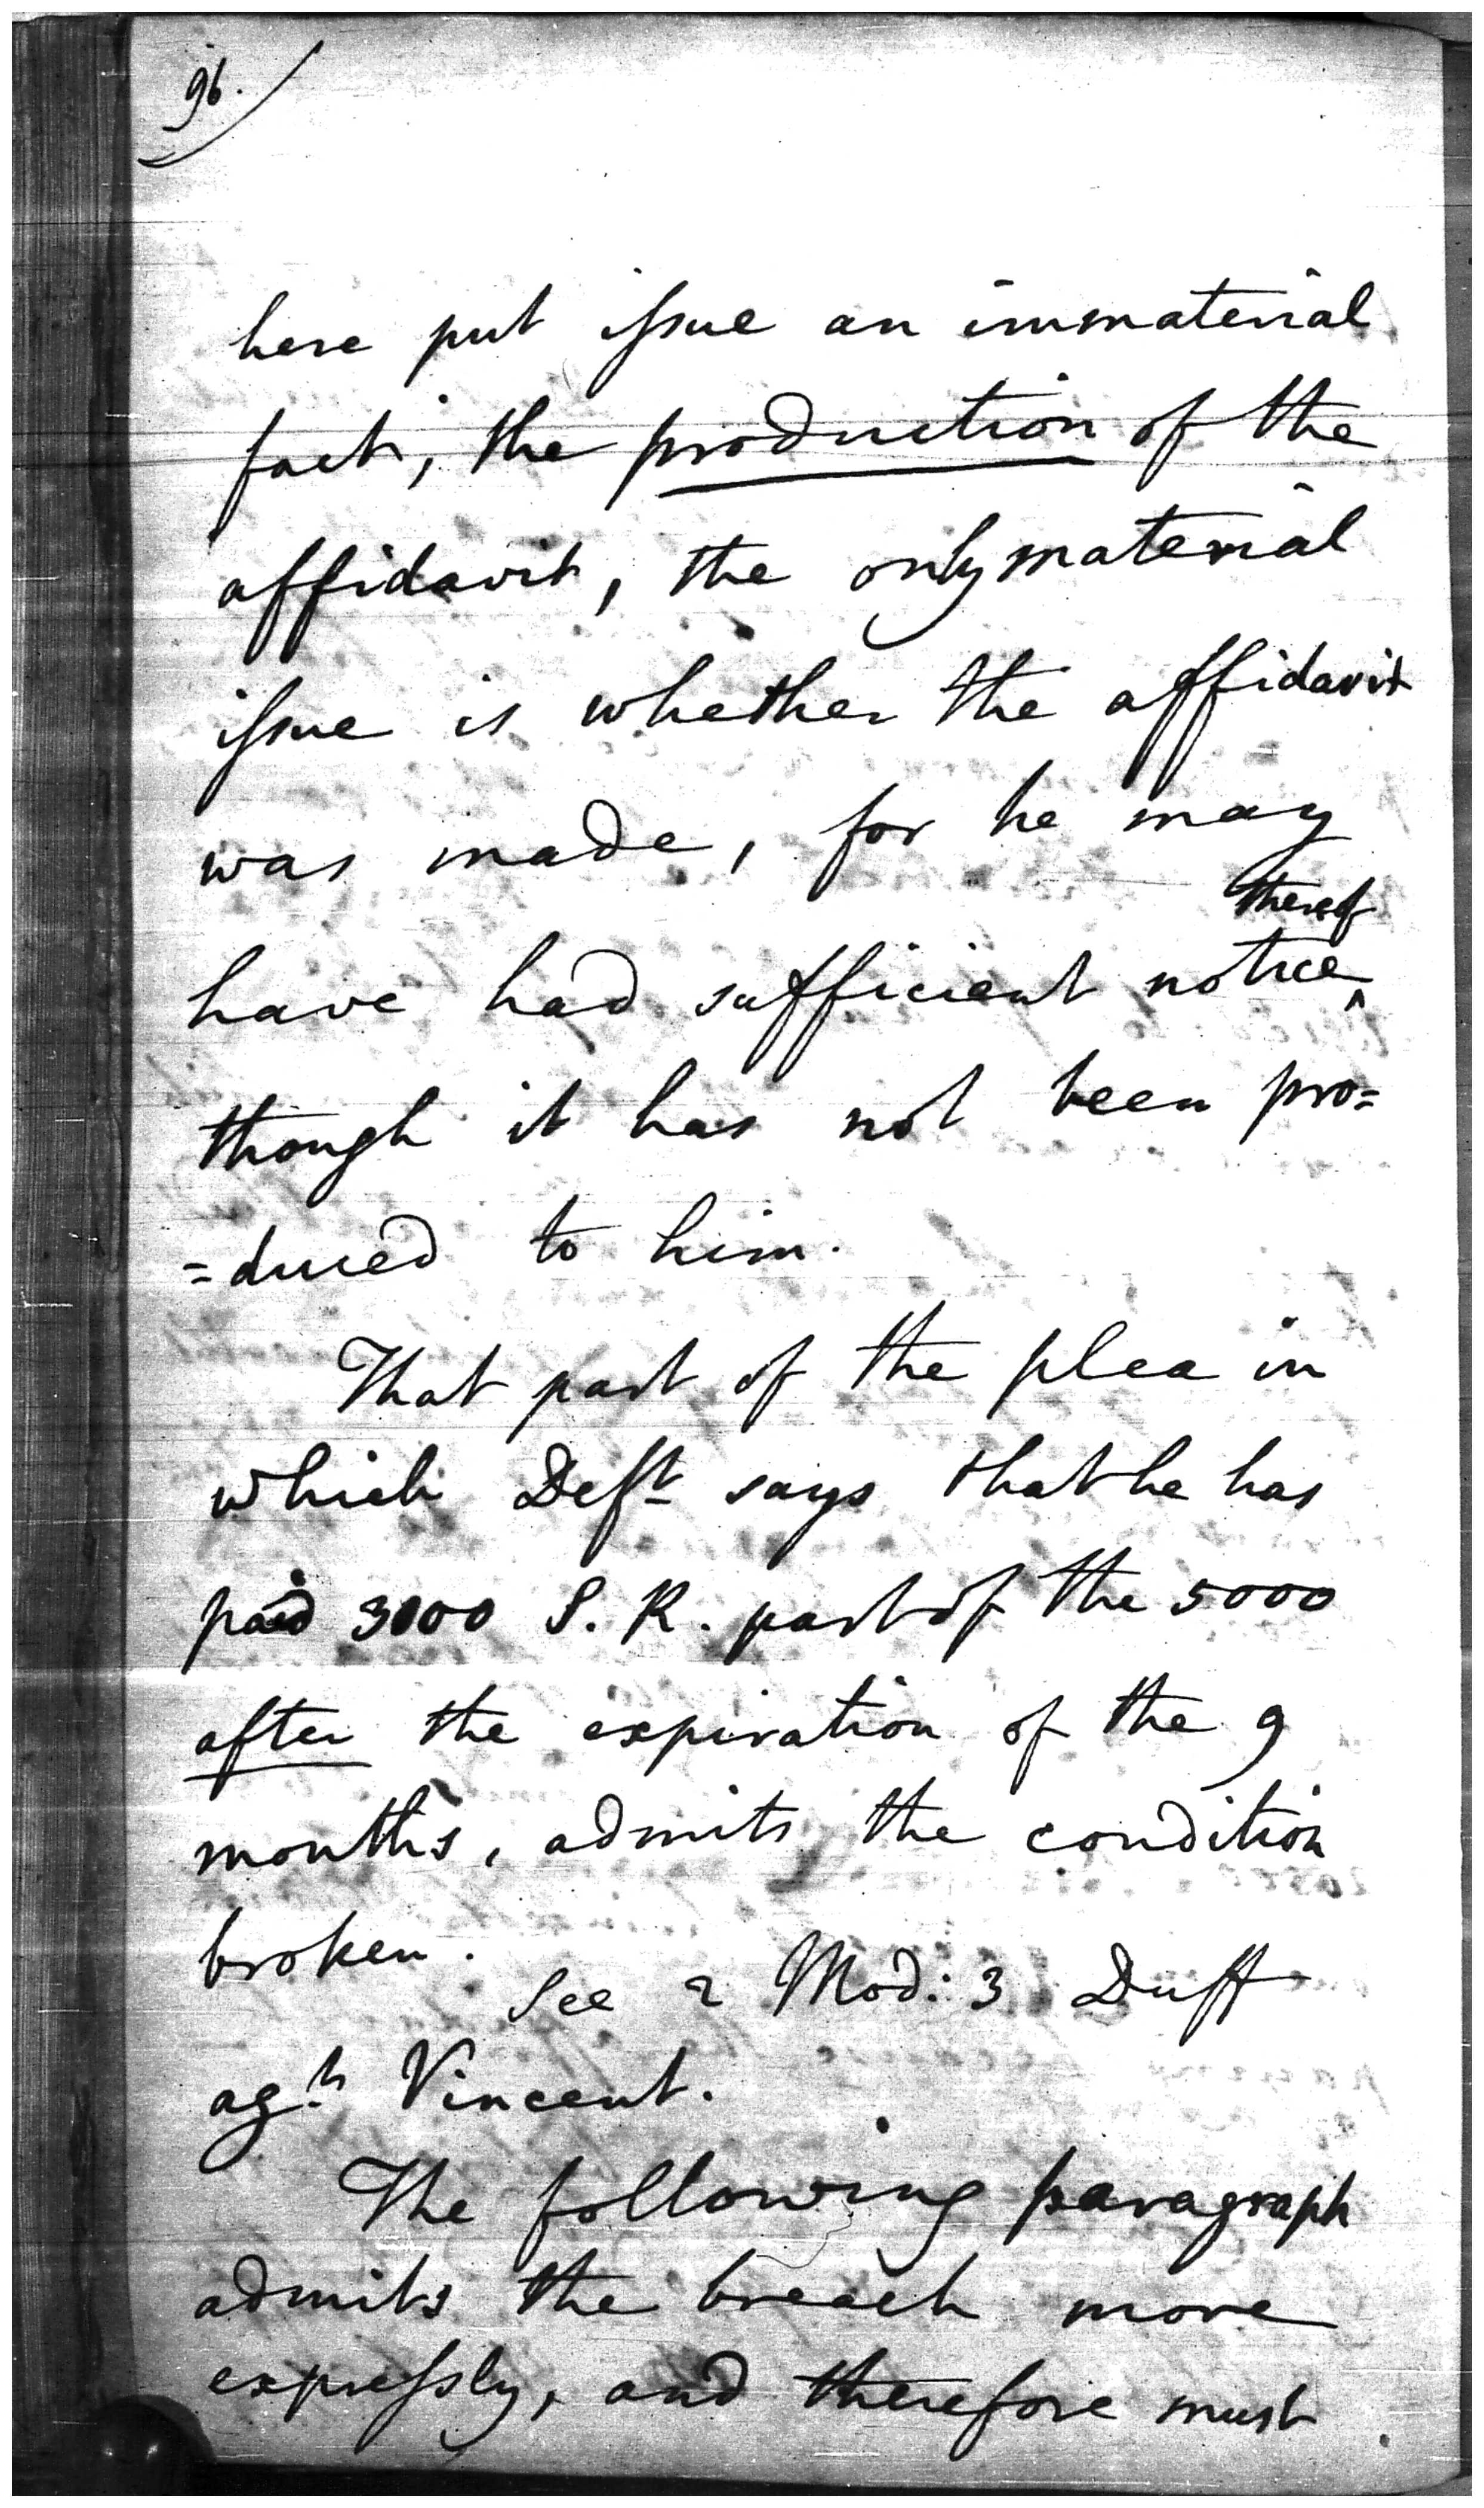 96.
here put issue an immaterial
fact, the production of the
affidavit, the only material
issue is whether the affidavit
was made, for he may
thereof
have had sufficient notice^
though it has not been pro=
=duced to him.
That part of the plea in
which Deft says that he has
paid 3000 S. R. part of the 5000
after the expiration of the 9
months, admits the condition
broken.
See 2 Mod: 3 Duff
agt Vincent.
The following paragraph
admits the breach more
expressly, and therefore must